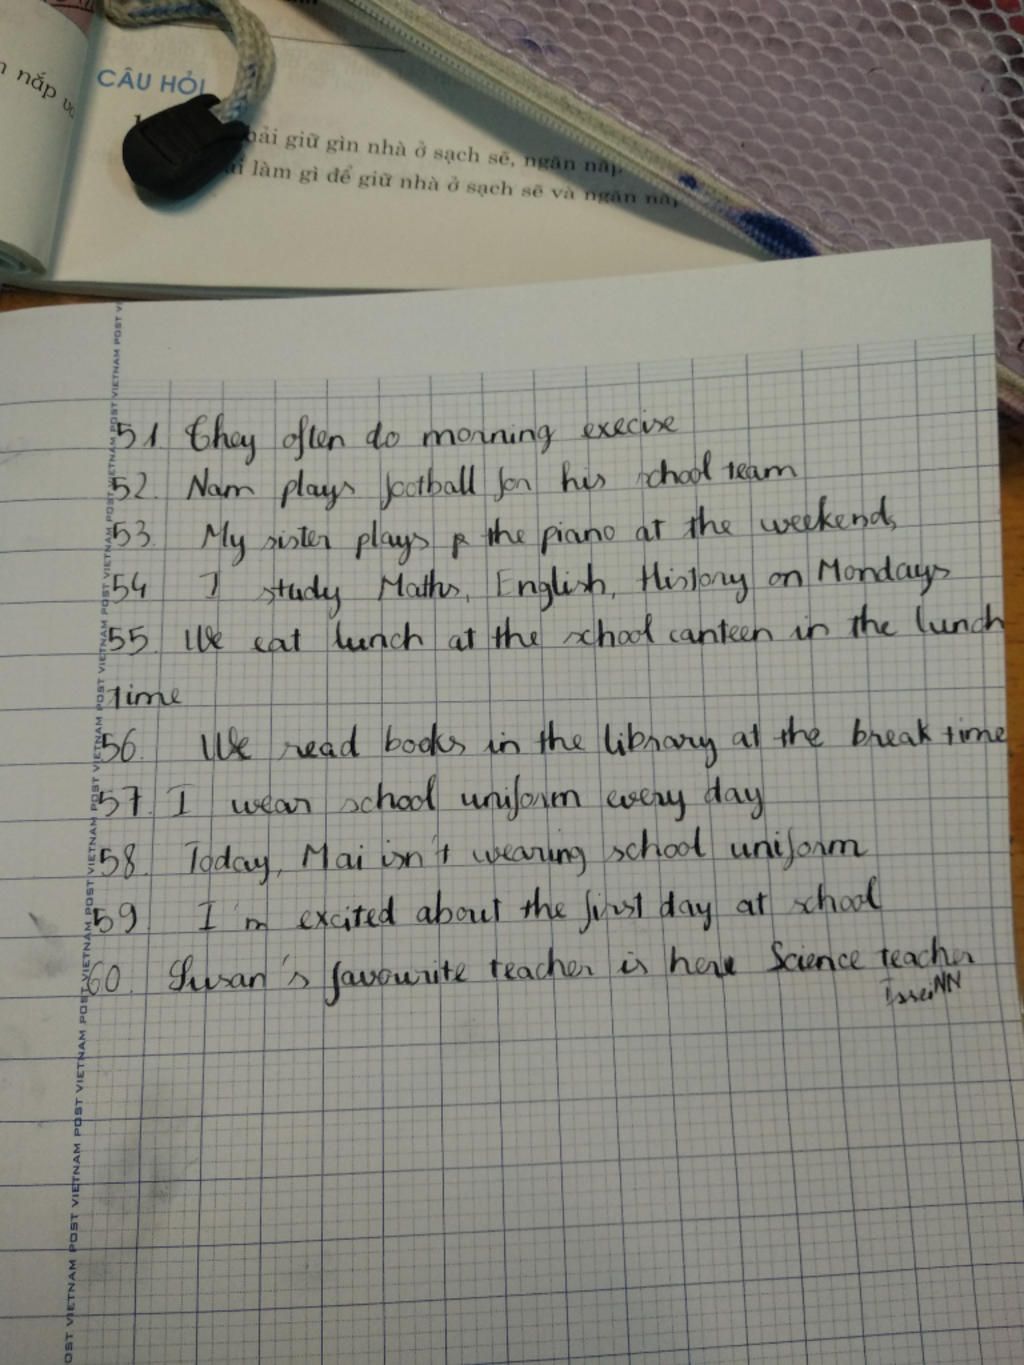 n nắp
CÂU HỎI
hải giữ gìn nhà ở sạch sẽ, ngăn nắp
ải làm gì để giữ nhà ở sạch sẽ và ngăn nắp
POST VIETNAM POST VIETNAM POST VIETNAM POST VIETNAM POST VIETNAM POST VIETNAM POST VIETNAM POST VIETNAM
51. They often do morning execise
52. Nam plays football for his school team
53. My sister plays the piano at the weekends
54 I study Maths, English, History on Mondays
55. We eat lunch at the school canteen in the lunch
time
56. We read books in the library at the break time
57. I wear school uniform every day
58. Today, Mai isn't wearing school uniform
59 I'm excited about the first day at school
60. Susan's favourite teacher is here Science teacher